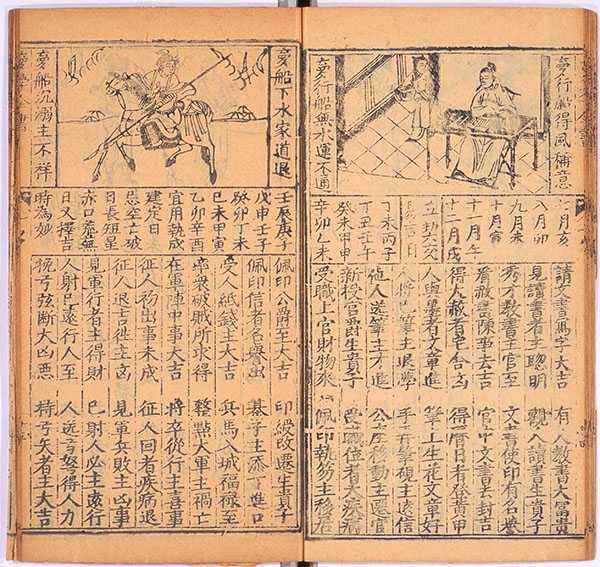 夢行船得風稱意
夢行船無水運不通
七月亥
八月卯
九月未
十月寅
十一月午
十二月戌
丁未丙子
丁丑壬午
癸未甲申
辛卯乙未
讀書寫字大吉 有人教書大富貴
見讀書者主聰明 觀人讀書生貴子
秀才教書主官至 文書使印有名譽
看赦書陳事去吉 官中文書去封吉
得大赦者宅舍 得曆日者登黃甲
人與墨者文章進 筆上生花文章好
筆主退學 手有筆硯主遠信
他人送筆主才進 公座移動主罷官
新授官爵生貴子 受職位者大疾病
受職上官財物來 佩印執笏主移居
夢船下水家道退
夢船沉溺主不祥
壬辰庚子
戊申壬子
癸卯丁未
己未甲寅
乙卯辛酉
宜用執成
建定日
忌空亡破
日長短星
赤口無
日又擇吉
時為妙
佩印公爵至大吉 印綬改遷生貴子
佩印信者名譽出 碁子主添丁進口
受人紙錢主大吉 兵馬入城福祿至
率衆破賊所求得 整點大軍主禍亡
在軍陣中事大吉 將卒從行主喜事
征人物出事未成 征人回者疾病退
征人退吉徃主高 見軍兵敗主凶事
見軍行者主得財 已射人必主遠行
人射已遠行人至 人送弓弩得人力
挽弓弦斷大凶惡 持弓矢者主大吉